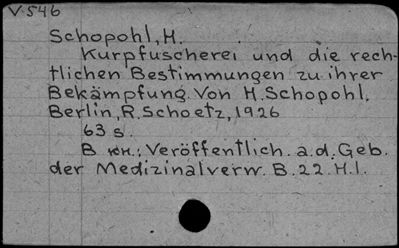 V 546
Schopohl, H.
Kurpfuscherei und die rech-
tlichen Bestimmungen zu ihrer
Bekämpfung. Von H. Schopohl.
Berlin, R. Schoetz, 1926
63 s.
В кн.: Veröffentlich. a. d. Geb.
der Medizinalverw. B. 22. H. 1.